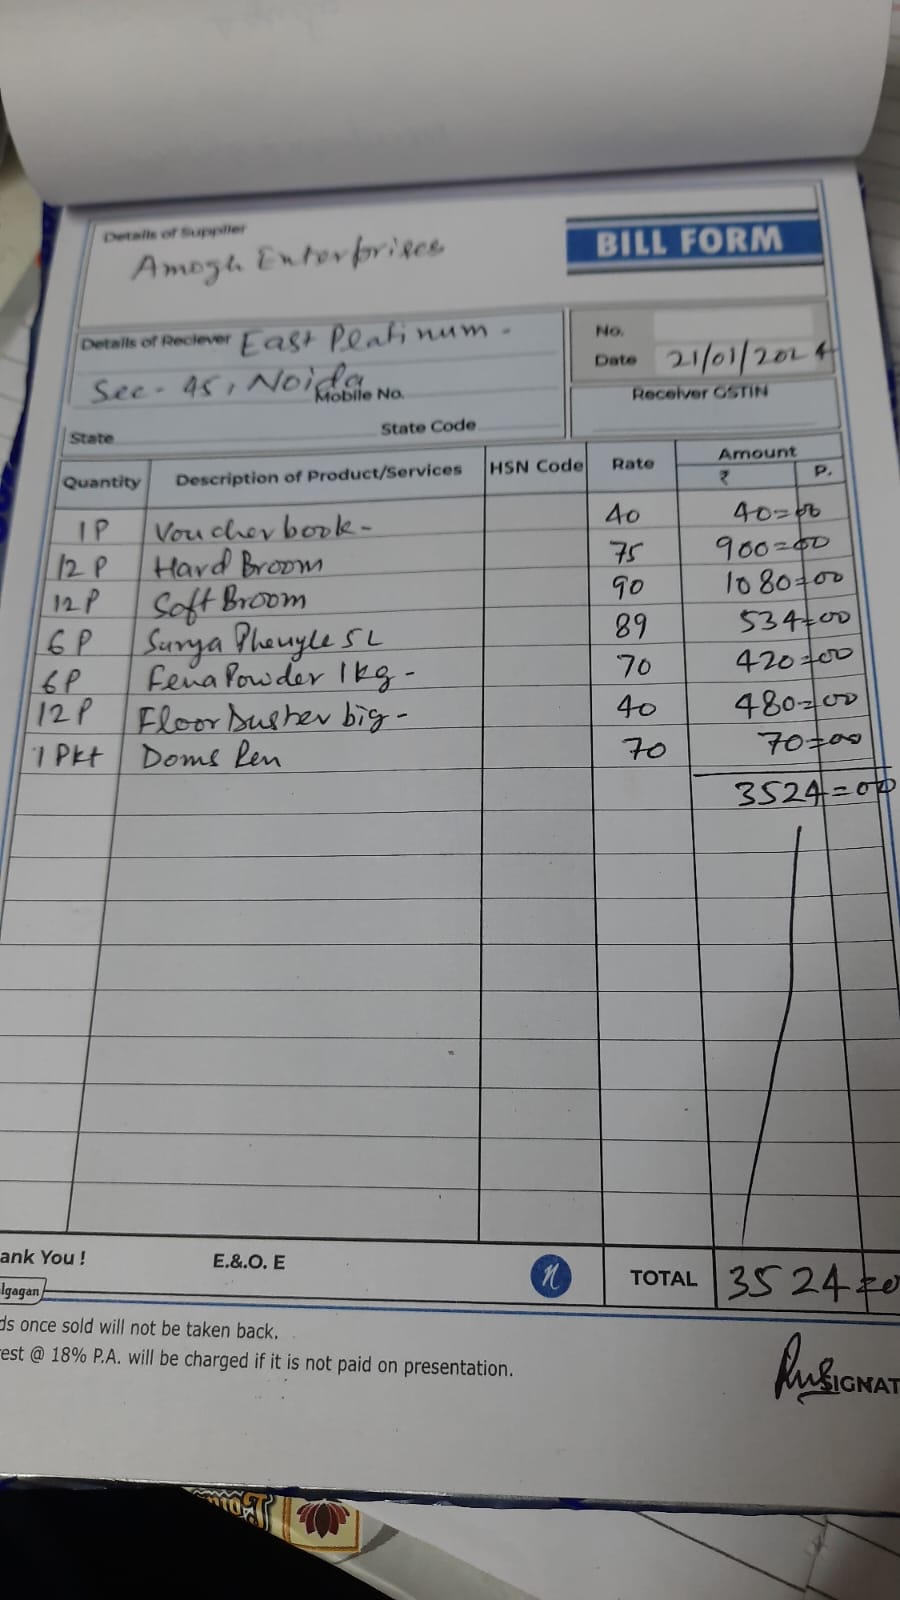 Details of Supplier
Amogh Enterprises
BILL FORM
Details of Reciever East Platinum -
Sec - 45, Noida
Mobile No.
State State Code
No.
Date 21/01/2024
Receiver GSTIN
Quantity Description of Product/Services HSN Code Rate Amount ₹ P.
1P Voucher book - 40 40=00
12P Hard Broom 75 900=00
12P Soft Broom 90 1080=00
6P Surya Phenyle 5L 89 534=00
6P Fena Powder 1kg - 70 420=00
12P Floor Duster big - 40 480=00
1 Pkt Doms Pen 70 70=00
3524=00
ank You !
E.&.O. E
n
TOTAL 3524=0
lgagan
ds once sold will not be taken back.
rest @ 18% P.A. will be charged if it is not paid on presentation.
SIGNAT